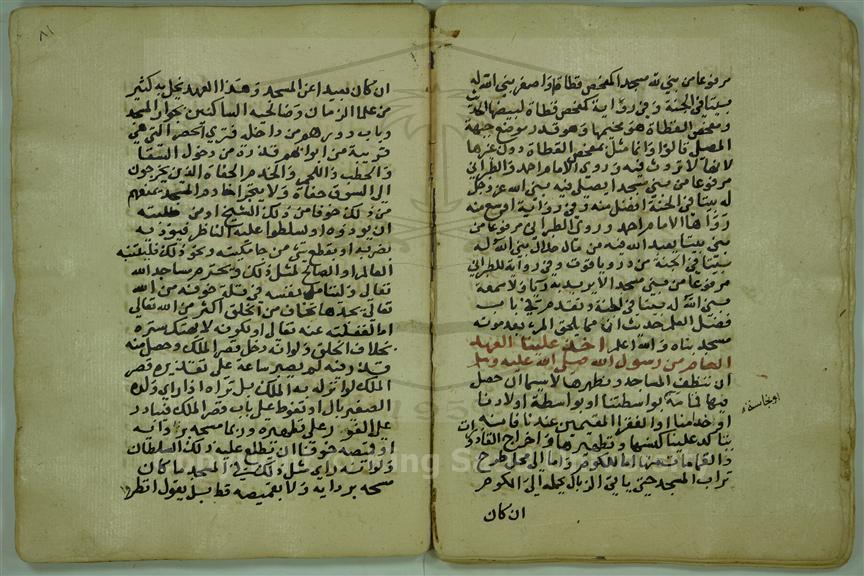 مرفوعا من بنى لله مسجدا كمفحص قطاة او اصغر بنى الله له
بيتا في الجنة وفي رواية كمفحص قطاة لبيضها الحديث
ومفحص القطاة هو مجثمها وهو قدر موضع جبهة
المصلي قالوا وانما مثل بمفحص القطاة دون غيرها
لانها لا تروث فيه وروى الامام احمد والطبراني
مرفوعا من بنى مسجدا يصلى فيه بنى الله عز وجل
له بيتا في الجنة افضل منه وفي رواية اوسع منه
رواها الامام احمد وروى الطبراني مرفوعا من
بنى بيتا يعبد الله فيه من مال حلال بنى الله له
بيتا في الجنة من در وياقوت وفي رواية للطبراني
مرفوعا من بنى مسجدا لا يريد به رياء ولا سمعة
بنى الله له بيتا في الجنة وتقدم في باب
فضل العلم حديث ان مما يلحق المرء بعد موته
مسجد بناه والله اعلم اخذ علينا العهد
العام من رسول الله صلى الله عليه وسلم
ان ننظف المساجد ونطهرها لا سيما ان حصل
فيها قمامة بواسطتنا او بواسطة اولادنا
او نجاسة
او خدامنا او الفقراء المقيمين عندنا فانه
يتاكد علينا كنسها وتطهيرها واخراج القاذورات
والقمامات منها اما للكوم واما الى محل طرح
تراب المسجد حتى ياتي الزبال يحمله الى الكوم
ان كان
٨١
ان كان بعيدا عن المسجد وهذا العهد يخل به كثير
من علماء الزمان وصالحيه الساكنين بجوار المسجد
وباب دورهم من داخله فترى الحصر التي هي
قريبة من ابوابهم قذرة من دخول السقا
والحطب واللحم والخدم الحفاة الذين يخرجون
الى السوق حفاة ولا يتجرأ خادم المسجد يمنعهم
من ذلك خوفا من ذلك الشيخ او من طلبته
ان يوذوه او يسلطوا عليه الناظر فيوذيه
بضرب او بقطع شيء من جامكيته ونحو ذلك فليتنبه
العالم او الصالح لمثل ذلك ويحترم مساجد الله
تعالى وليتامل نفسه في قلة خوفه من الله
تعالى يجدها تخاف من الخلق اكثر من الله تعالى
اما لغفلته عنه تعالى او لكونه لا يهتك ستره
بخلاف الخلق ولو انه دخل قصر الملك وحصل منه
قذر فيه لم يصبر ساعة على تقذير قصر
الملك لو اتركه به الملك بل تراه اذا راى ولده
الصغير بال او تغوط على باب قصر الملك فيبادر
على الفور على تطهيره وربما مسحه بردائه
او قميصه خوفا ان يطلع عليه ذلك السلطان
ولو انه راى مثل ذلك في المسجد ما كان
مسحه بردائه ولا بقميصه قط بل يقول انظروا